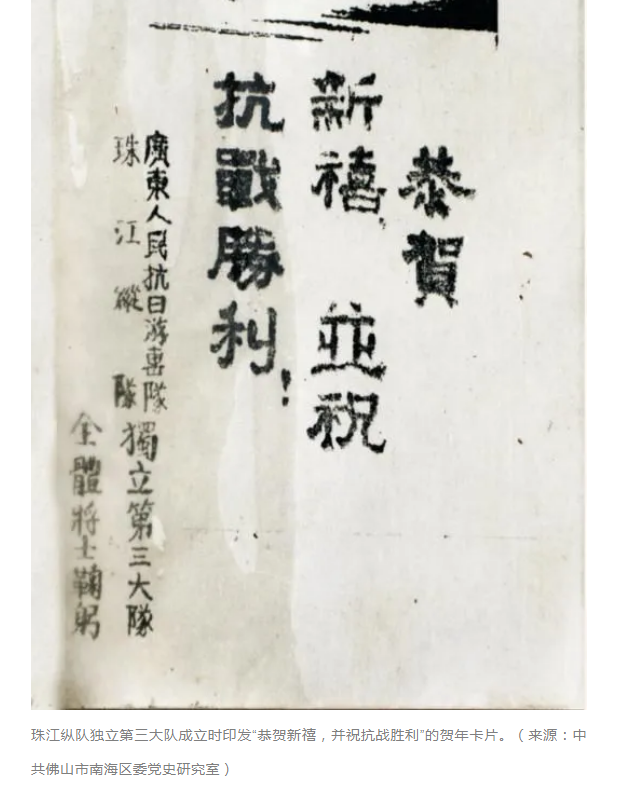 恭賀
新禧,並祝
抗戰勝利!
廣東人民抗日游擊隊
珠江縱隊
獨立第三大隊
全體將士鞠躬
珠江纵队独立第三大队成立时印发“恭贺新禧，并祝抗战胜利”的贺年卡片。（来源：中
共佛山市南海区委党史研究室）